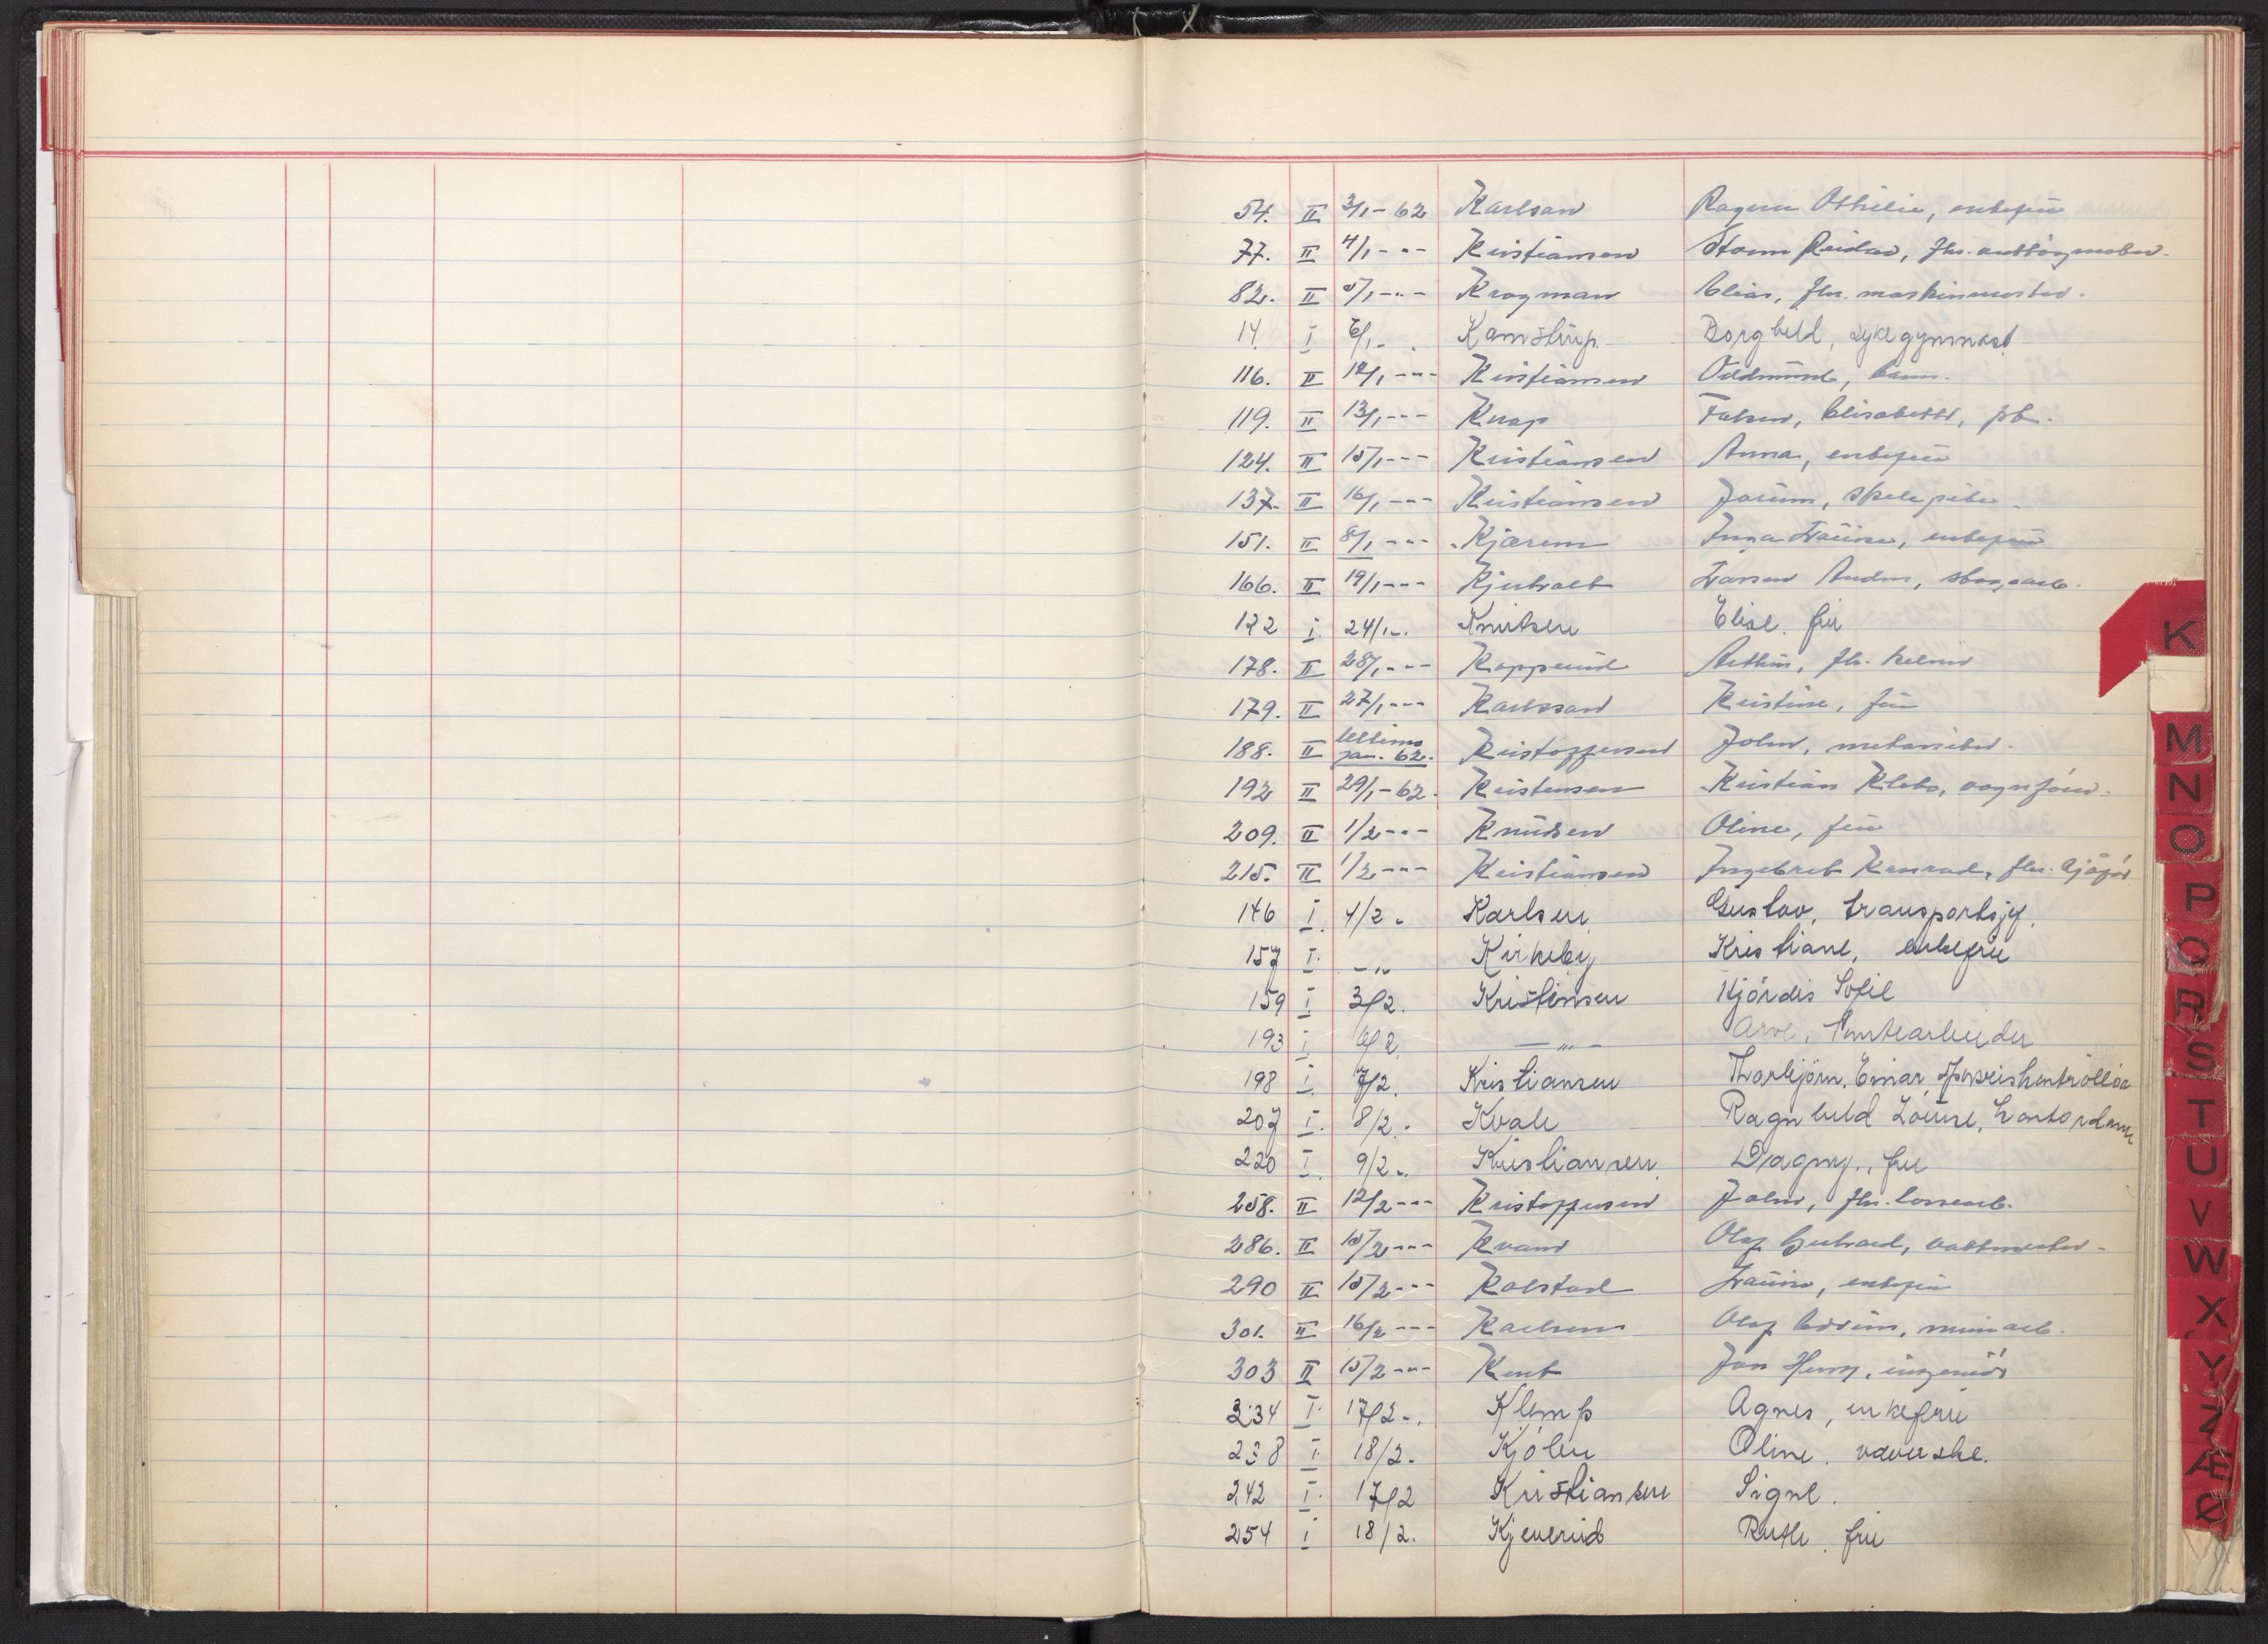 54. II 3/1-62 Karlsen Ragna Othilie, enkefru
77. II 4/1-"- Kristiansen Reidar, fhv.
82. II 5/1-"- Krogman Elias, fhv. maskinmester.
14 I 6/1- Kamstrup. Borghild, sykegymnast
116. II 12/1-"- Kristiansen Oddmund, barn.
119. II 13/1-"- Knap Falsen, Elisabeth,
124. II 15/1-"- Kristiansen Anna, enkefru
137. II 16/1-"- Kristiansen Jorunn, skolepike.
151. II 8/1-"- Kjærem Inga Lovise, enkefru
166. II 19/1-"- Larsen skogsarb.
122 I. 24/1-. Knutsen Elise. fru
178. II 28/1-"- Kopperud Arthur, fhv. kelner
179. II 27/1-"- Karlsson Kristine, fru
188. II Ultimo jan. 62. Kristoffersen John, mekaniker.
192 II 29/1-62. Kristensen Kristian Klebo, vognfører.
209. II 1/2-"- Knudsen Oline, fru
215. II 1/2-"- Kristiansen Ingebret Konrad, fhv. sjåfør
146 I. 1/2 - Karlsen Gustav, transportsjef.
157 I. -"- Kirkeby Kristiane, enkefru
159 I 3/2. Kristensen Hjördis Sofie
193 I 6/2. -"- Arve,
198 I. 7/2. Kristiansen Thorbjörn. Einar
207 I. 8/2. Kvale Ragnhild Louise, kontordame
220 I. 9/2-. Kristiansen Dagny., fru
258. II 12/2-"- Kristoffersen John, fhv. lossearb.
286. II 15/2-"- Kvam Olaf Gerhard, vaktmester.
290 II 15/2-"- Kolstad Lovise, enkefru
301. II 16/2-"- Karlsen Olaf Edvin, murarb.
303 II 15/2-"- Kent Jon Henry, ingeniør
234 I. 17/2-. Klemp Agnes, enkefru
238 I. 18/2. Kjölen Oline. væverske.
242 I. 17/2 Kristiansen Signe.
254 I 18/2. Kjeverud Ruth. fru
K
M
N
O
P
Q
R
S
T
U
V
W
X
Y
Z
Æ
Ø